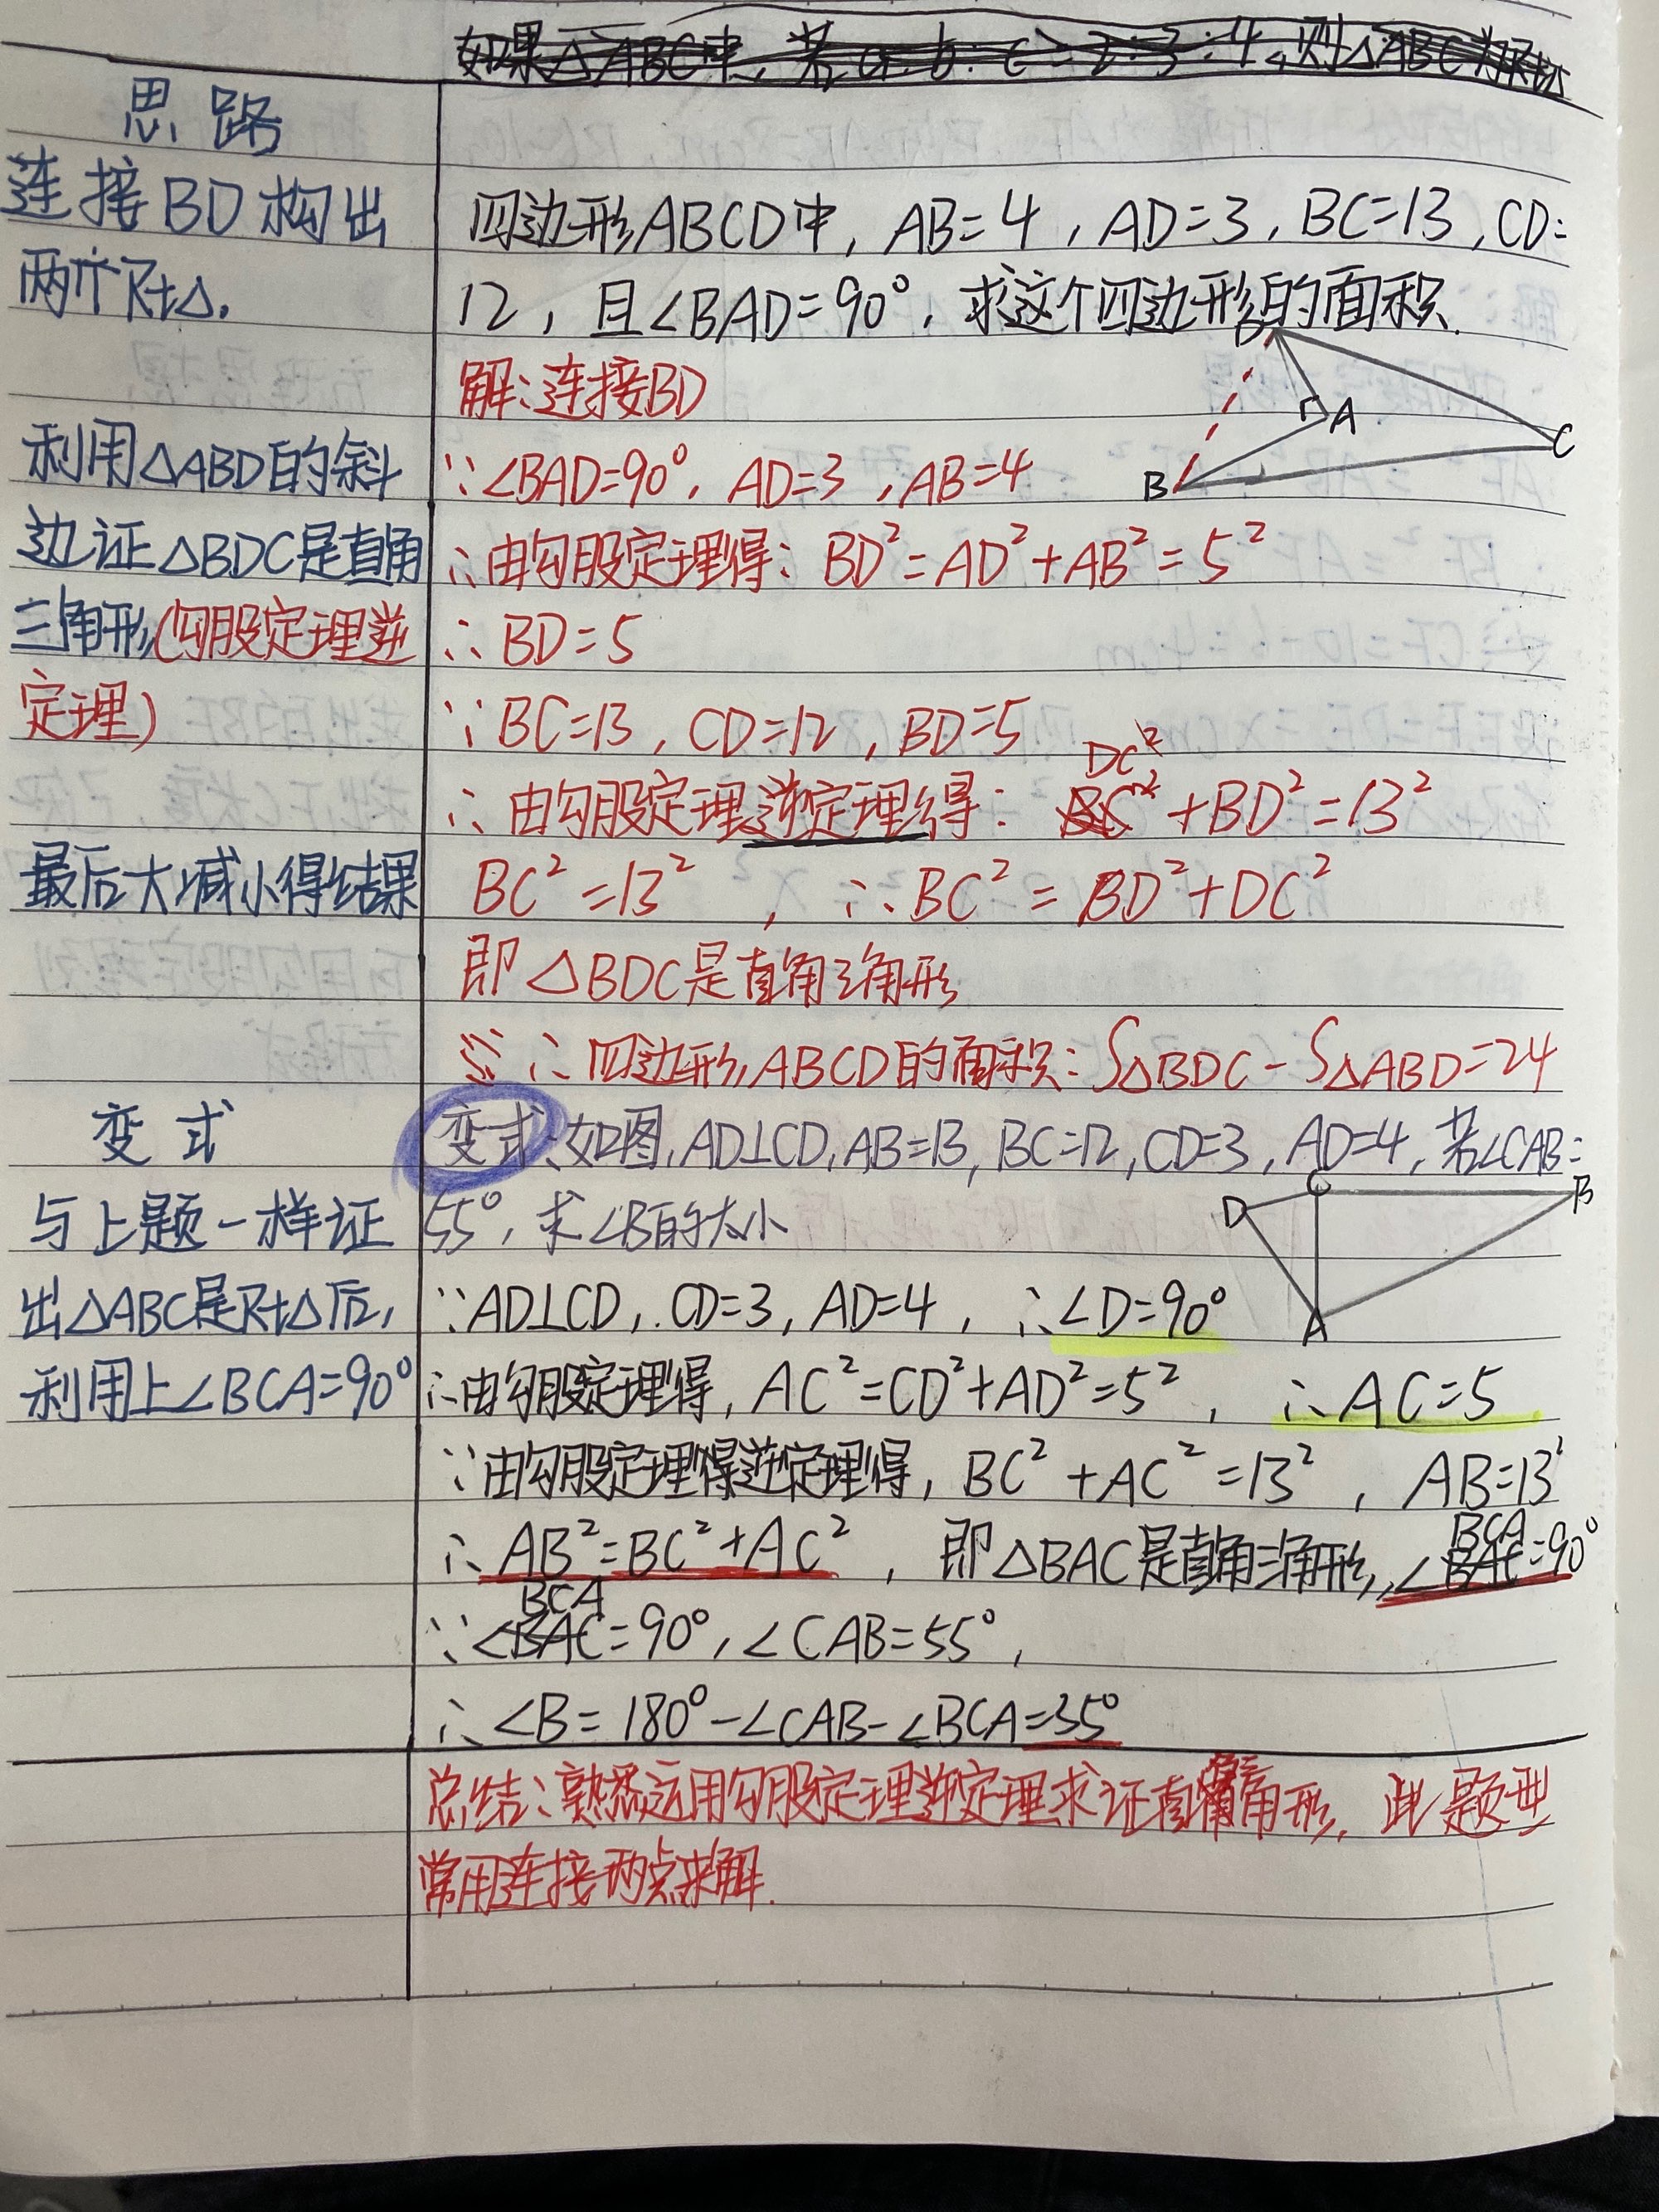 如果△ABC中,若a:b:c=2:3:4,则△ABC为Rt△
思路
连接BD构出
两个Rt△.
利用△ABD的斜
边证△BDC是直角
三角形(勾股定理逆
定理)
最后大减小得结果
四边形ABCD中, AB=4, AD=3, BC=13, CD=
12, 且∠BAD=90°, 求这个四边形的面积.
D
A
C
B
解:连接BD
∵∠BAD=90°, AD=3, AB=4
∴由勾股定理得: BD²=AD²+AB²=5²
∴BD=5
∵BC=13, CD=12, BD=5
DC²
∴由勾股定理逆定理得: BC²+BD²=13²
BC²=13², ∴BC²=BD²+DC²
即△BDC是直角三角形
∴四边形ABCD的面积: S△BDC-S△ABD=24
变式
与上题一样证
出△ABC是Rt△后,
利用上∠BCA=90°
变式、如图, AD⊥CD, AB=13, BC=12, CD=3, AD=4, 若∠CAB=
55°, 求∠B的大小
D
C
B
A
∵AD⊥CD, CD=3, AD=4, ∴∠D=90°
∴由勾股定理得, AC²=CD²+AD²=5², ∴AC=5
∵由勾股定理得逆定理得, BC²+AC²=13², AB=13²
∴AB²=BC²+AC², 即△BAC是直角三角形, ∠BAC=90°
BCA
BCA
∵∠BAC=90°, ∠CAB=55°,
∴∠B=180°-∠CAB-∠BCA=35°
总结:熟悉运用勾股定理逆定理求证直角角形, 此题型
常用连接两点来解.